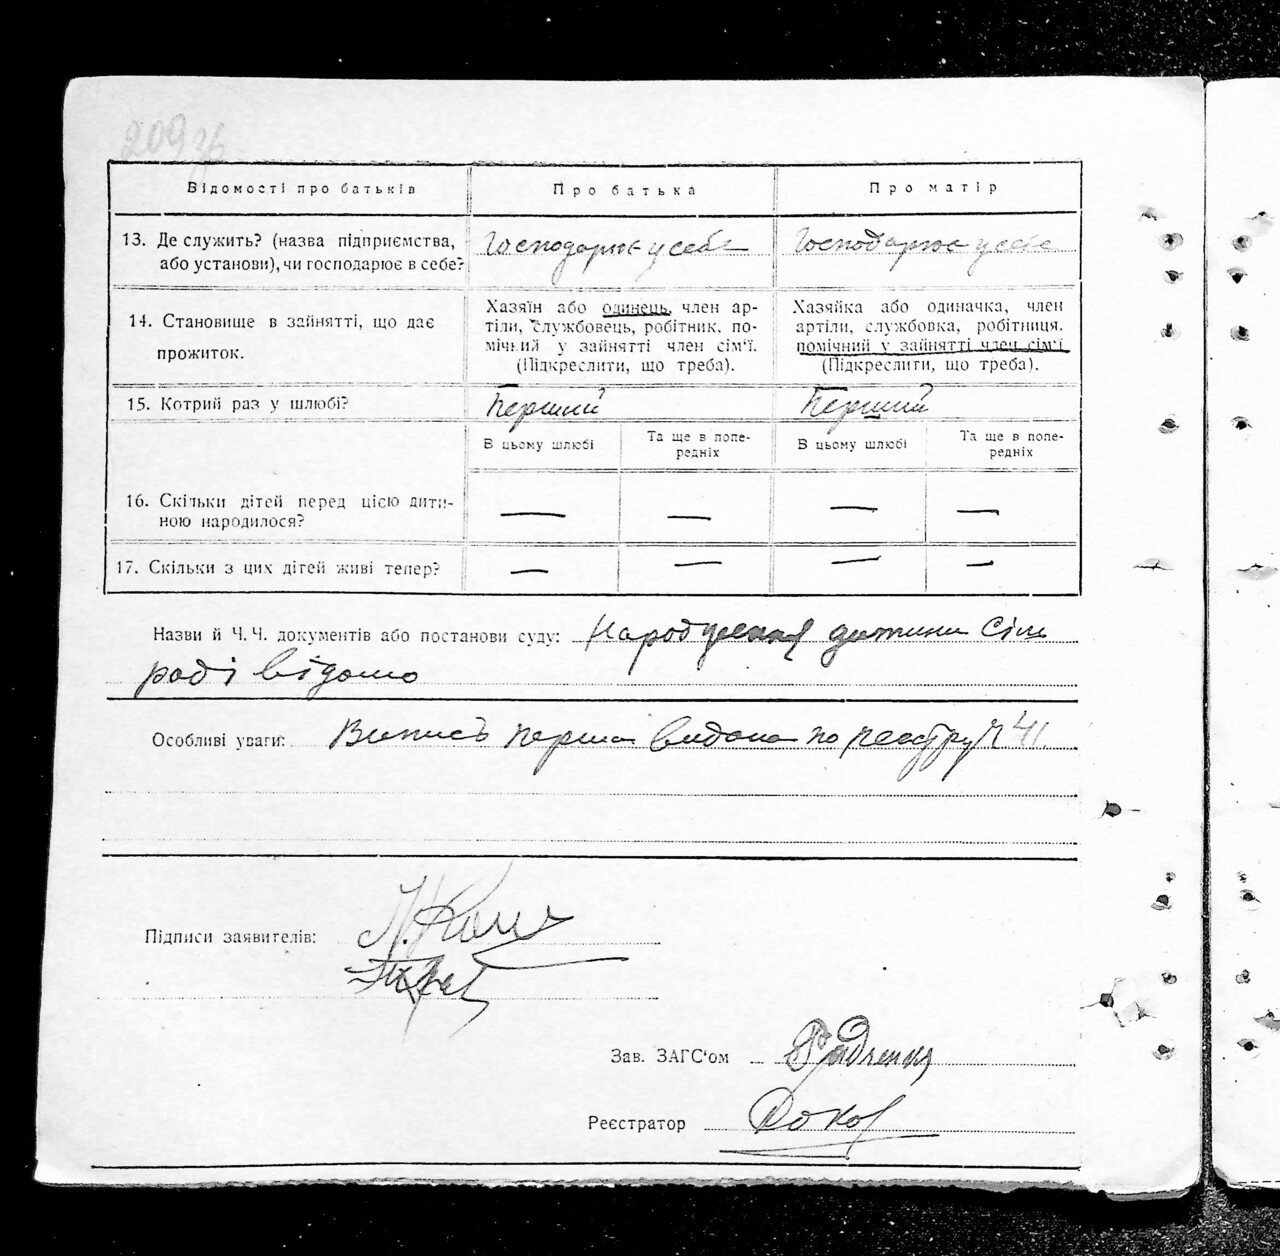 209зв
Відомості про батьків
Про батька
Про матір
13. Де служить? (назва підприємства,
або установи), чи господарює в себе?
Господарює у себе
Господарює у себе
14. Становище в зайнятті, що дає
прожиток.
Хазяїн або одинець, член ар-
тіли, службовець, робітник, по-
мічний у зайнятті член сім'ї.
(Підкреслити, що треба).
Хазяйка або одиначка, член
артіли, службовка, робітниця,
помічний у зайнятті член сім'ї
(Підкреслити, що треба).
15. Котрий раз у шлюбі?
Перший
Перший
В цьому шлюбі
Та ще в попе-
редніх
В цьому шлюбі
Та ще в попе-
редніх
16. Скільки дітей перед цією дити-
ною народилося?
— — — —
17. Скільки з цих дітей живі тепер?
— — — —
Назви й Ч. Ч. документів або постанови суду: Народження дитини Сіль
раді відомо
Особливі уваги: Випись перша видана по реєстру № 41
Підписи заявителів:
Зав. ЗАГС'ом Радченко
Реєстратор